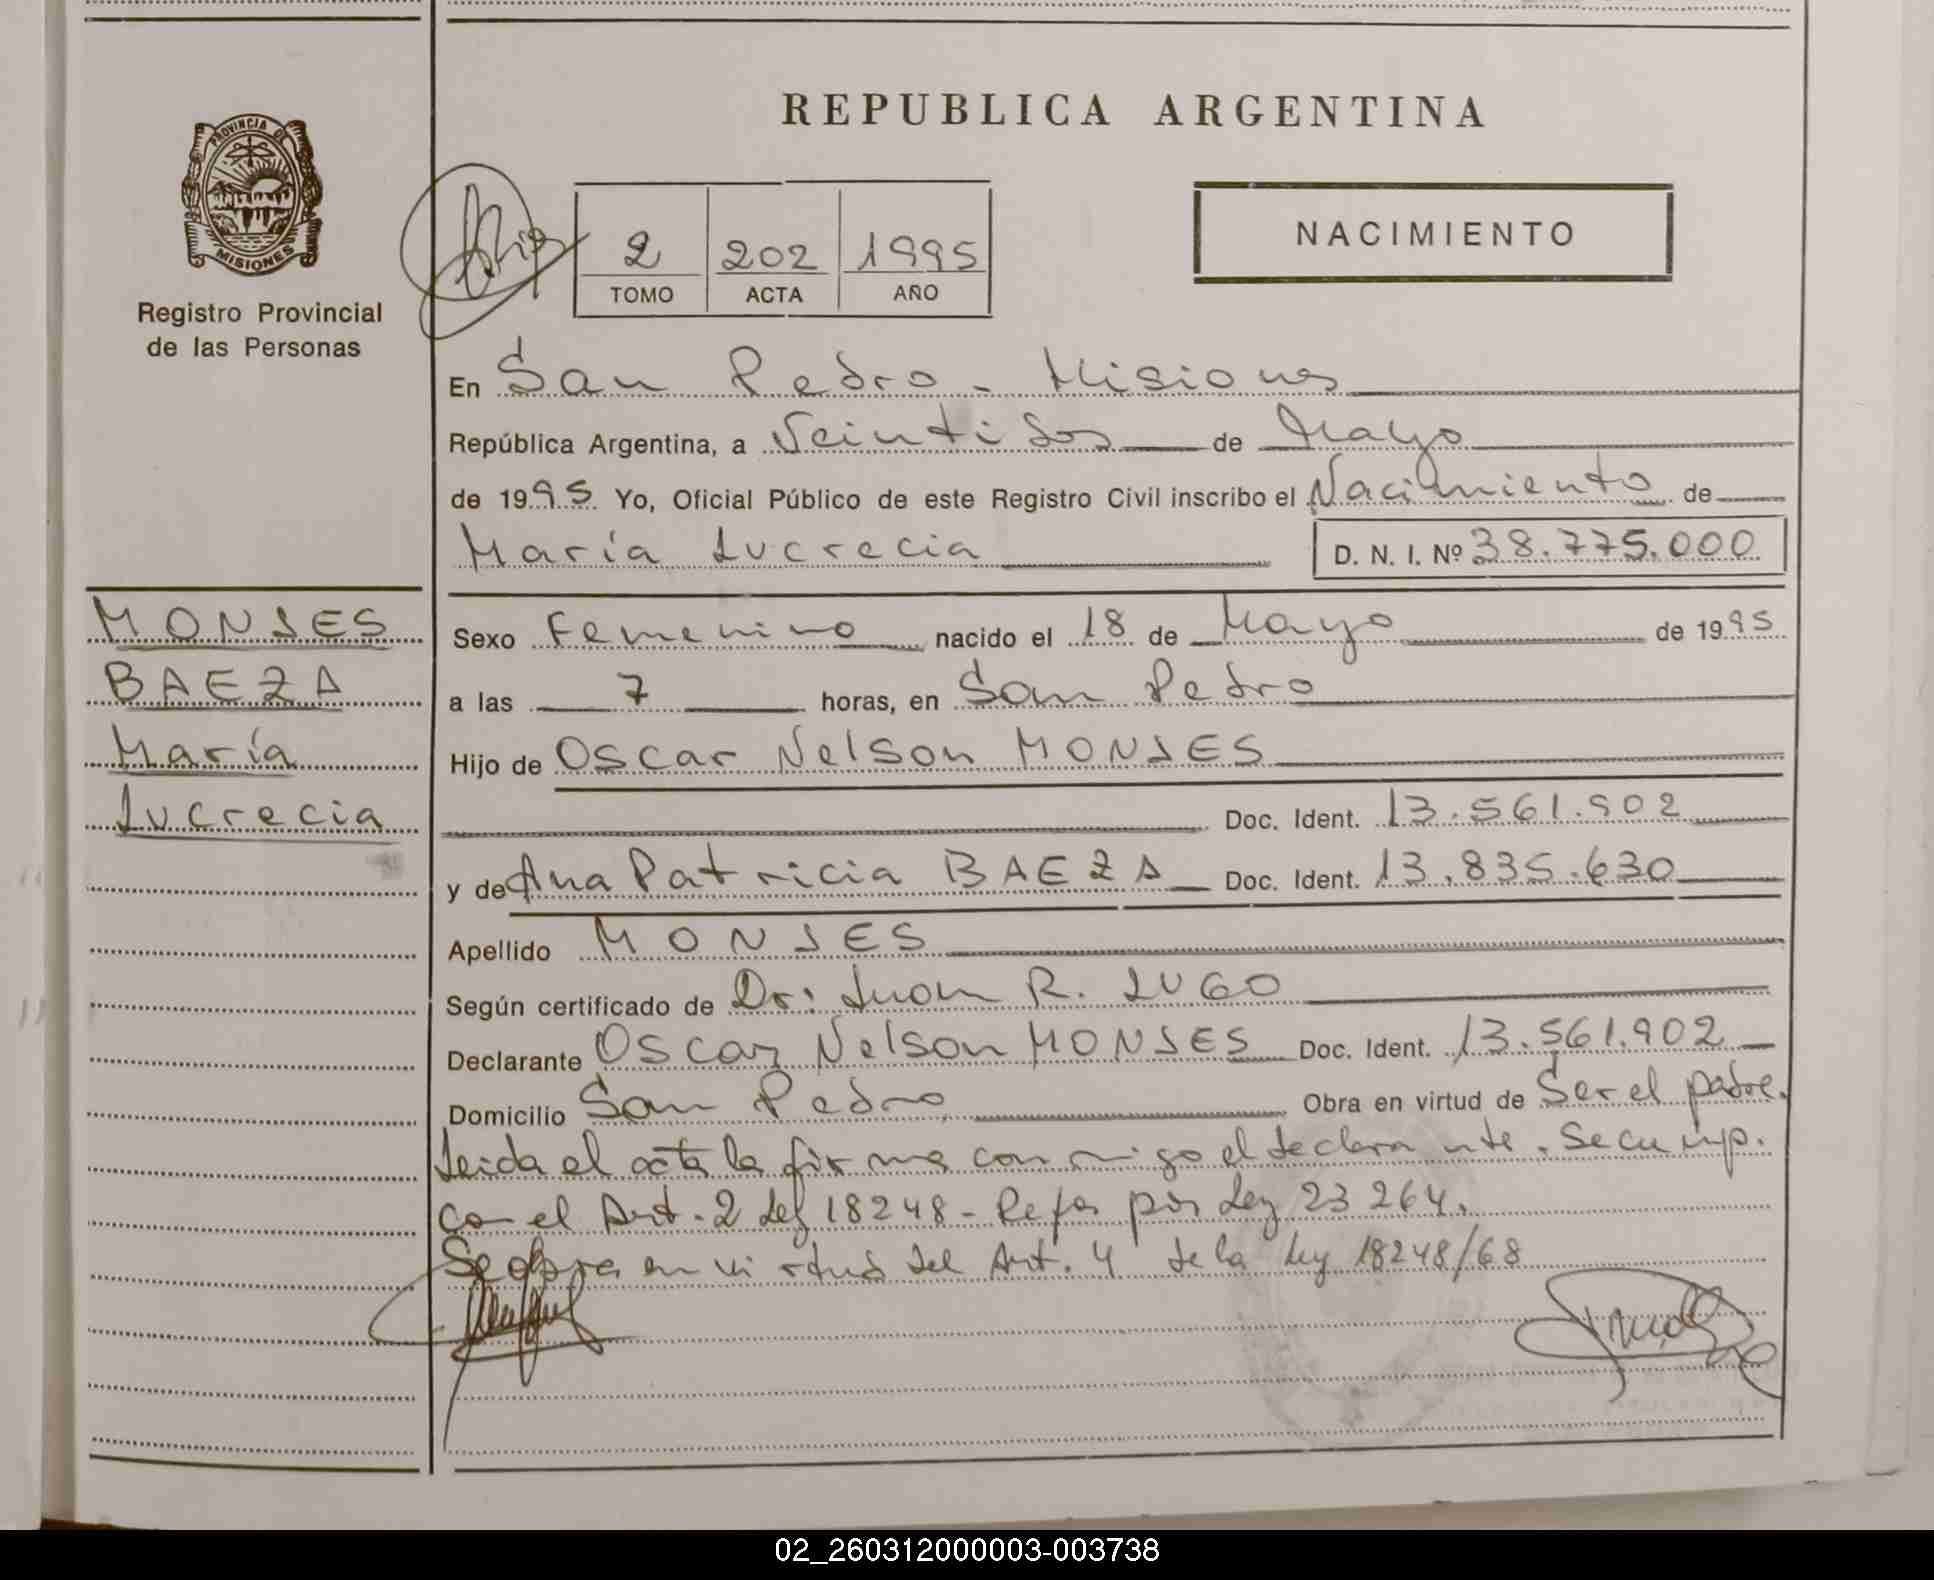 REPUBLICA ARGENTINA
PROVINCIA DE
MISIONES
Registro Provincial
de las Personas
2 202 1995
TOMO ACTA AÑO
NACIMIENTO
En San Pedro - Misiones
República Argentina, a Veintidos de Mayo
de 1995 Yo, Oficial Público de este Registro Civil inscribo el Nacimiento de
María Lucrecia D. N. I. Nº 38.775.000
MONJES
BAEZA
María
Lucrecia
Sexo Femenino nacido el 18 de Mayo de 1995
a las 7 horas, en San Pedro
Hijo de Oscar Nelson MONJES
Doc. Ident. 13.561.902
y de Ana Patricia BAEZA Doc. Ident. 13.835.630
Apellido MONJES
Según certificado de Dr: Juan R. LUGO
Declarante Oscar Nelson MONJES Doc. Ident. 13.561.902
Domicilio San Pedro Obra en virtud de Ser el padre.
Leida el acta la firma conmigo el declarante. Se cump.
con el Art. 2 Ley 18248 - Refor por Ley 23264.
Se obra en virtud del Art. 4 de la Ley 18248/68
02_260312000003-003738